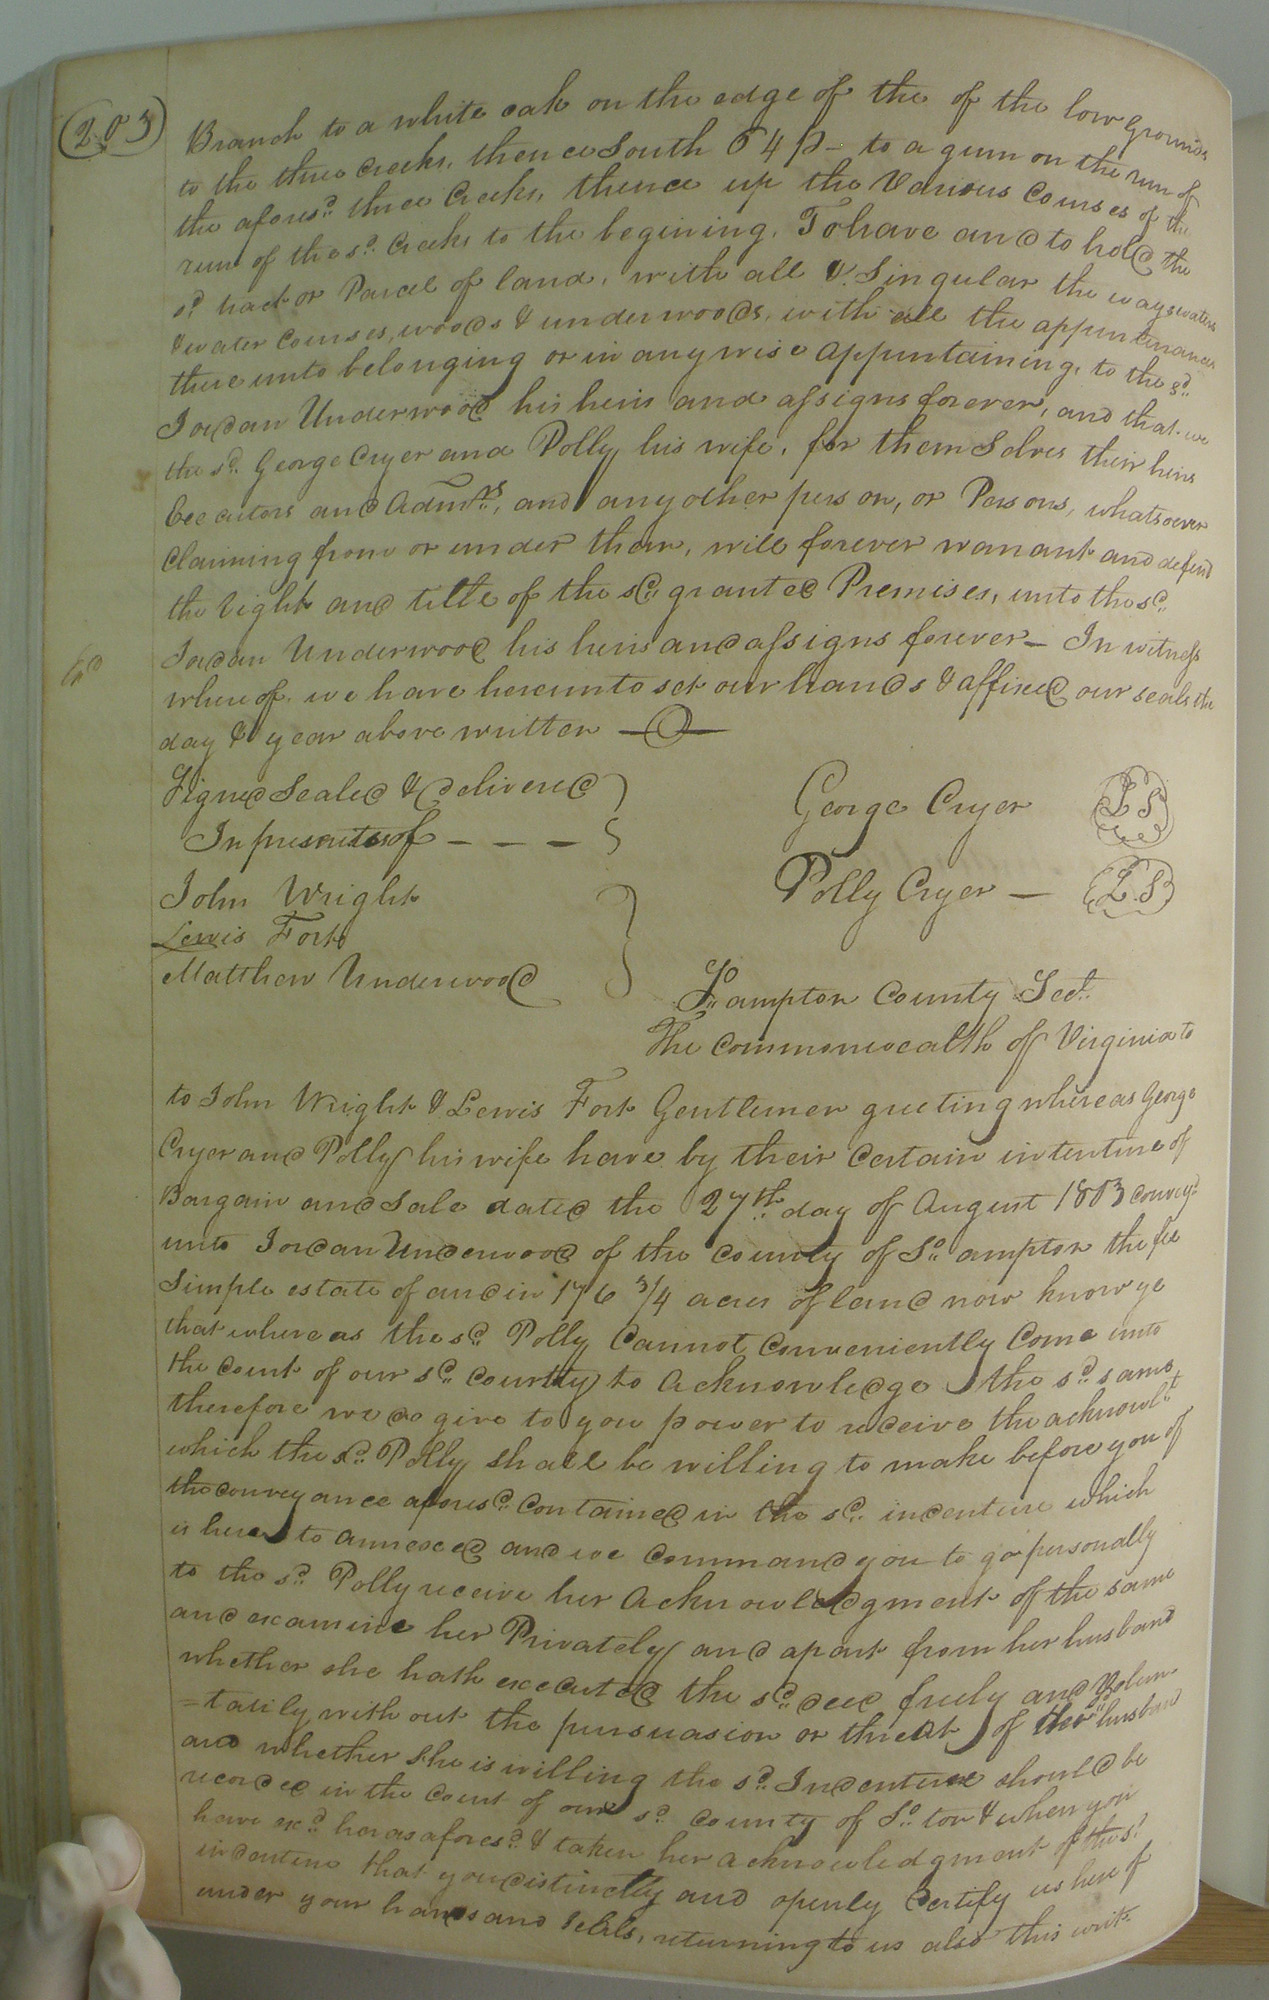 203
Branch to a white oak on the edge of the of the low Grounds
to the three Creeks, thence South 64 p - to a gum on the run of
the aforesd. three Creeks, thence up the Various Courses of the
run of the sd. Creeks to the begining. To have and to hold the
sd tract or Parcel of land, with all & Singular the ways waters
& water Courses, woods & underwoods, with all the appurtenances
thereunto belonging or in any wise appurtaining, to the sd.
Jordan Underwood his heirs and assigns forever, and that we
the sd. George Cryer and Polly his wife, for them Selves their heirs
Executors and Admrs., and any other person, or Persons, whatsoever
Claiming from or under them, will forever warrant and defend
the right and title of the sd. granted Premises, unto the sd.
Jordan Underwood his heirs and assigns forever - In witness
where of, we have hereunto set our hands & affixed our seals the
day & year above written
Signed Sealed & delivered
In presents of - - -
George Cryer LS
Polly Cryer - L.S
John Wright
Lewis Fort
Matthew Underwood
So. ampton County Sct.
The Commonwealth of Virginia to
to John Wright & Lewis Fort Gentlemen greeting whereas George
Cryer and Polly his wife have by their Certain intenture of
Bargain and Sale dated the 27th. day of August 1803 convey'd
unto Jordan Underwood of the County of So. ampton the fee
Simple estate of and in 176 3/4 acres of land now know ye
that whereas the sd. Polly Cannot Conveniently Come unto
the Court of our sd. County to Acknowledge the sd. same
therefore we do give to you power to receive the acknowlt
which the sd. Polly shall be willing to make before you of
the conveyance aforesd. Contained in the sd. indenture which
is here to annexed and we Command you to go personally
to the sd. Polly receive her Acknowledgment of the same
and examine her Privately and apart from her husband
whether she hath executed the sd. deed freely and Volun
=tarily with out the pursuasion or threat of her husband
and whether she is willing the sd. Indenture should be
recorded in the Court of our sd. County of So. ton & when you
have exd. her as aforesd. & taken her acknowledgment of the sd.
indenture that you distinctly and openly Certify us here of
under your hands and Seals, returning to us also this writ.